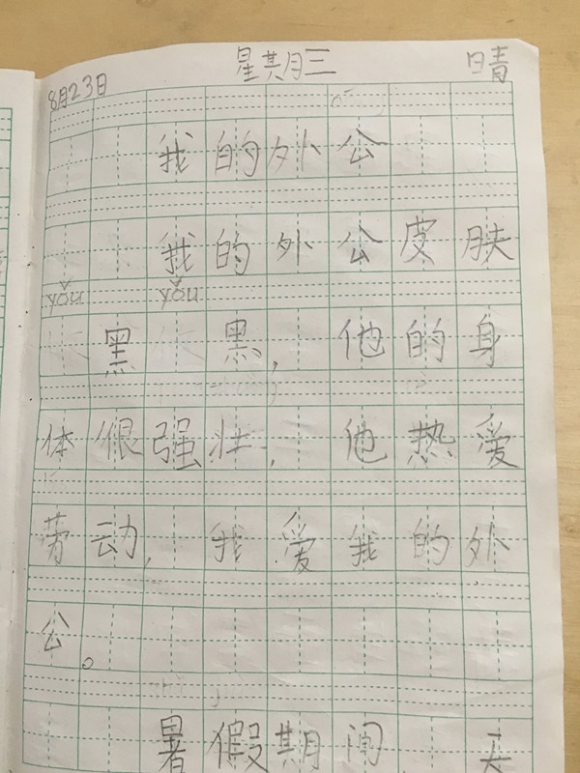 8月23日 星期三 晴
我的外公
我的外公皮肤
yǒu yǒu
黑 黑，他的身
体很强壮，他热爱
劳动，我爱我的外
公。
暑假期间 天